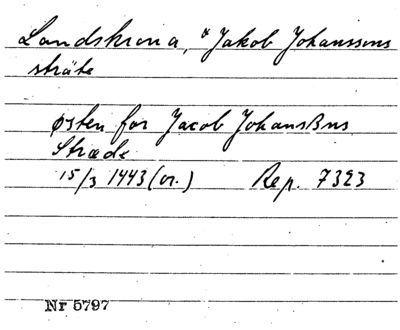 Landskrona, * Jakob Johanssons
sträte
østen for Jacob JohansBns
Stræde
15/3 1443 (or.) Rep. 7323
Nr 5797